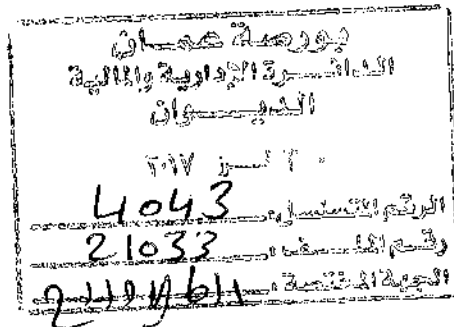 بورصة عمان
الدائرة الإدارية والمالية
الديوان
تموز ٢٠١٧
الرقم المتسلسل: 4043
رقم الملف: 21033
الجهة المختصة: